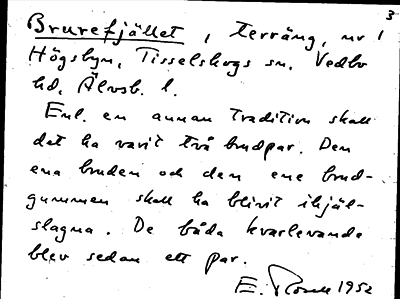 3
Brurefjället, terräng, nv 1
Högsbyn, Tisselskogs sn. Vedbo
hd, Älvsb. l.
Enl. en annan tradition skall
det ha varit två brudpar. Den
ena bruden och den ene brud-
gummen skall ha blivit ihjäl-
slagna. De båda kvarlevande
blev sedan ett par.
E. Rosell 1952